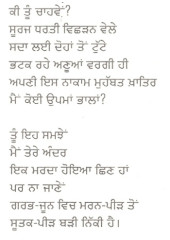 ਕੀ ਤੂੰ ਚਾਹਵੇਂ?
ਸੂਰਜ ਧਰਤੀ ਵਿਛੜਨ ਵੇਲੇ
ਸਦਾ ਲਈ ਦੋਹਾਂ ਤੋਂ ਟੁੱਟੇ
ਭਟਕ ਰਹੇ ਅਣੂਆਂ ਵਰਗੀ ਹੀ
ਅਪਣੀ ਇਸ ਨਾਕਾਮ ਮੁਹੱਬਤ ਖ਼ਾਤਿਰ
ਮੈਂ ਕੋਈ ਉਪਮਾਂ ਭਾਲਾਂ?
ਤੂੰ ਇਹ ਸਮਝੇਂ
ਮੈਂ ਤੇਰੇ ਅੰਦਰ
ਇਕ ਮਰਦਾ ਹੋਇਆ ਛਿਣ ਹਾਂ
ਪਰ ਨਾ ਜਾਣੇਂ
ਗਰਭ-ਜੂਨ ਵਿਚ ਮਰਨ-ਪੀੜ ਤੋਂ
ਸੂਤਕ-ਪੀੜ ਬੜੀ ਨਿੱਕੀ ਹੈ।